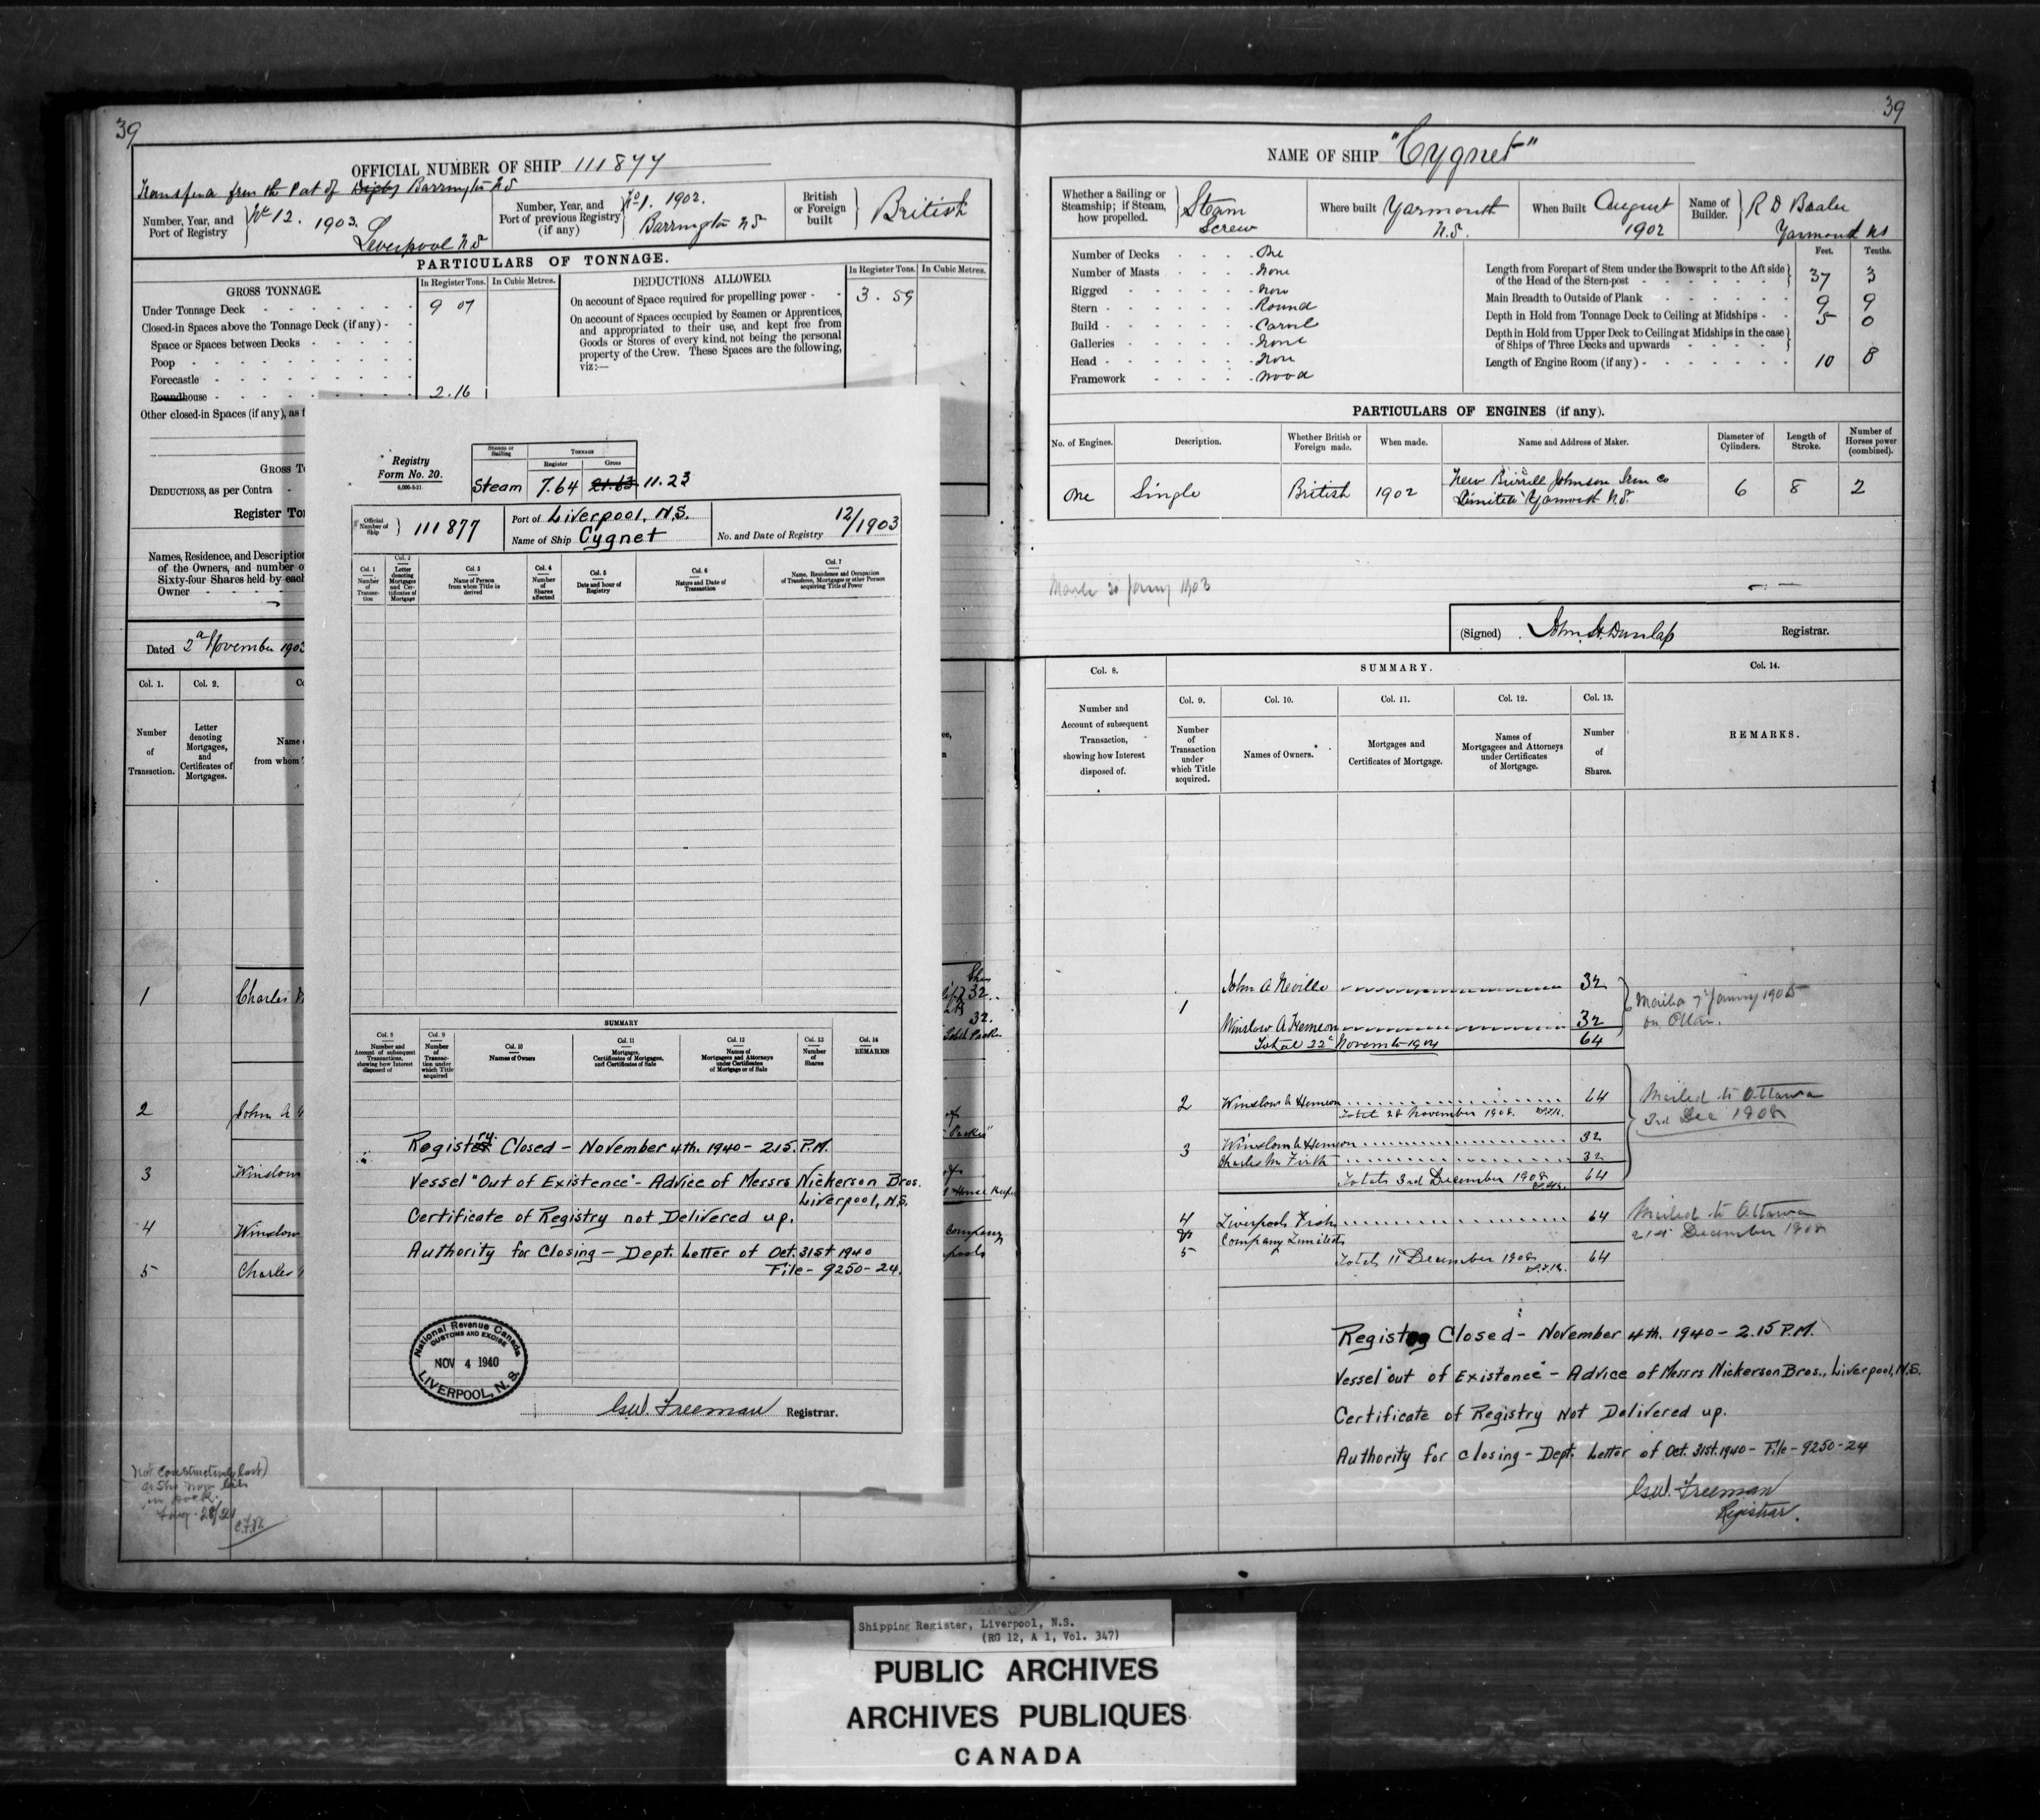 39
OFFICIAL NUMBER OF SHIP 111877
Transfer from the Port of Digby Barrington NS
Number, Year, and Port of Registry
No 12. 1903. Liverpool NS
Number, Year, and Port of previous Registry (if any)
No 1. 1902. Barrington NS
British or Foreign built
British
PARTICULARS OF TONNAGE.
GROSS TONNAGE.
In Register Tons.
In Cubic Metres.
DEDUCTIONS ALLOWED.
In Register Tons.
In Cubic Metres.
Under Tonnage Deck 9 07
Closed-in Spaces above the Tonnage Deck (if any)
Space or Spaces between Decks
Poop
Forecastle
Roundhouse 2.16
Other closed-in Spaces (if any), as f
On account of Space required for propelling power 3.59
On account of Spaces occupied by Seamen or Apprentices, and appropriated to their use, and kept free from Goods or Stores of every kind, not being the personal property of the Crew. These Spaces are the following, viz:—
GROSS T
DEDUCTIONS, as per Contra
Register To
Names, Residence, and Description
of the Owners, and number o
Sixty-four Shares held by each
Owner
Dated 2d November 1903
Col. 1.
Col. 2.
Number of Transaction.
Letter denoting Mortgages, and Certificates of Mortgages.
Name
from whom
1
Charles
2
John A
3
Winslow
4
Winslow
5
Charles
32
32.
Company
Aug. 28/21
Registry
Form No. 20.
Steam or Sailing
TONNAGE
Register
Gross
Steam 7.64 21.63 11.23
Official Number of Ship
111877
Port of Liverpool, N.S.
Name of Ship Cygnet
No. and Date of Registry 12/1903
Col. 1
Number of Transaction
Col. 2
Letter denoting Mortgages and Certificates of Mortgage
Col. 3
Name of Person from whom Title is derived
Col. 4
Number of Shares affected
Col. 5
Date and hour of Registry
Col. 6
Nature and Date of Transaction
Col. 7
Name, Residence and Occupation of Transferee, Mortgagee or other Person acquiring Title of Power
SUMMARY
Col. 8
Number and Account of subsequent Transactions, showing how Interest disposed of
Col. 9
Number of Transaction under which Title acquired
Col. 10
Names of Owners
Col. 11
Mortgages, Certificates of Mortgages, and Certificates of Sale
Col. 12
Names of Mortgagees and Attorneys under Certificates of Mortgage or of Sale
Col. 13
Number of Shares
Col. 14
REMARKS
Registry Closed - November 4th. 1940 - 2.15. P.M.
Vessel "Out of Existence" - Advice of Messrs Nickerson Bros.
Liverpool, N.S.
Certificate of Registry not Delivered up.
Authority for Closing - Dept. Letter of Oct. 31st 1940
File - 9250-24.
National Revenue Canada
CUSTOMS AND EXCISE
NOV 4 1940
LIVERPOOL, N.S.
G.W. Freeman Registrar.
39
NAME OF SHIP "Cygnet"
Whether a Sailing or Steamship; if Steam, how propelled.
Steam Screw
Where built Yarmouth N.S.
When Built August 1902
Name of Builder.
Yarmouth NS
Number of Decks One
Number of Masts None
Rigged None
Stern Round
Build Carvel
Galleries None
Head None
Framework Wood
Feet.
Tenths.
Length from Forepart of Stem under the Bowsprit to the Aft side of the Head of the Stern-post 37 3
Main Breadth to Outside of Plank 9 9
Depth in Hold from Tonnage Deck to Ceiling at Midships 5 0
Depth in Hold from Upper Deck to Ceiling at Midships in the case of Ships of Three Decks and upwards
Length of Engine Room (if any) 10 8
PARTICULARS OF ENGINES (if any).
No. of Engines.
Description.
Whether British or Foreign made.
When made.
Name and Address of Maker.
Diameter of Cylinders.
Length of Stroke.
Number of Horses power (combined).
One Single British 1902 New Burrill Johnson Iron Co Limited Yarmouth N.S. 6 8 2
(Signed) John H. Dunlap Registrar.
Col. 8.
Number and Account of subsequent Transaction, showing how Interest disposed of.
SUMMARY.
Col. 9.
Number of Transaction under which Title acquired.
Col. 10.
Names of Owners.
Col. 11.
Mortgages and Certificates of Mortgage.
Col. 12.
Names of Mortgagees and Attorneys under Certificates of Mortgage.
Col. 13.
Number of Shares.
Col. 14.
REMARKS.
1
John A Neville 32
Winslow A Hemeon 32
Total 22d November 1904 64
2 Winslow A Hemeon 64
Total 28 November 1908.
3
Winslow A Hemeon 32
Charles M. Firth 32
Total 3rd December 1908 64
Mailed to Ottawa
3rd Dec 1908
4
&
5
Liverpool Fish 64
Company Limited
Total 11 December 1908 64
Mailed to Ottawa
21st December 1908
Registry Closed - November 4th. 1940 - 2.15 P.M.
Vessel "out of Existence" - Advice of Messrs Nickerson Bros., Liverpool, N.S.
Certificate of Registry Not Delivered up.
Authority for Closing - Dept. Letter of Oct. 31st. 1940 - File - 9250-24
G.W. Freeman
Registrar.
Shipping Register, Liverpool, N.S.
(RG 12, A 1, Vol. 347)
PUBLIC ARCHIVES
ARCHIVES PUBLIQUES
CANADA